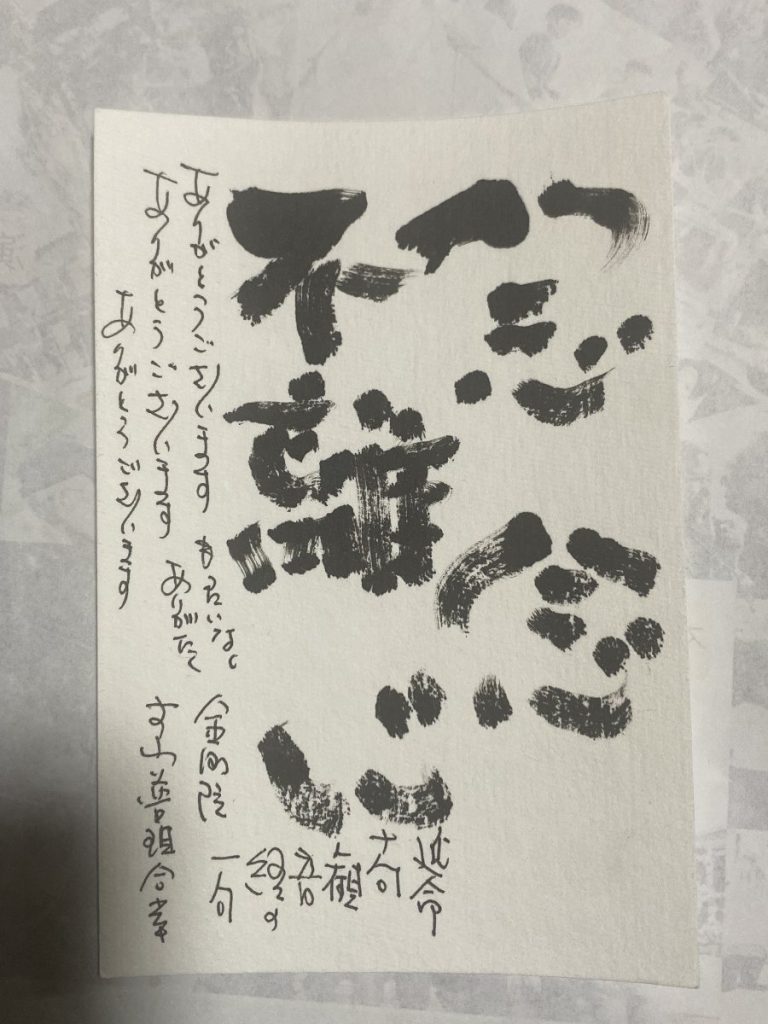 念念
不離心
延命
十句
観
音
経の
一句
ありがとうございます もったいなし
金剛院
ありがとうございます ありがたし
合掌
ありがとうございます